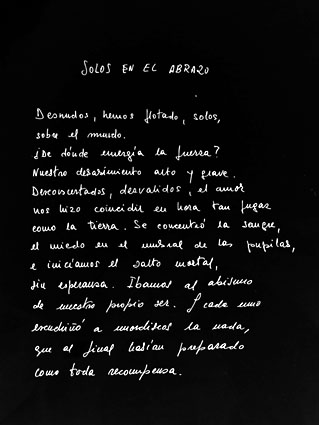 SOLOS EN EL ABRAZO
Desnudos, hemos flotado, solos,
sobre el mundo.
¿De dónde emergía la fuerza?
Nuestro desasimiento alto y grave.
Desconcertados, desvalidos, el amor
nos hizo coincidir en hora tan fugaz
como la tierra. Se concentró la sangre,
el miedo en el umbral de las pupilas,
e iniciamos el salto mortal,
sin esperanza. Íbamos al abismo
de nuestro propio ser. Y cada uno
escudriñó a mordiscos la nada,
que al final habían preparado
como toda recompensa.